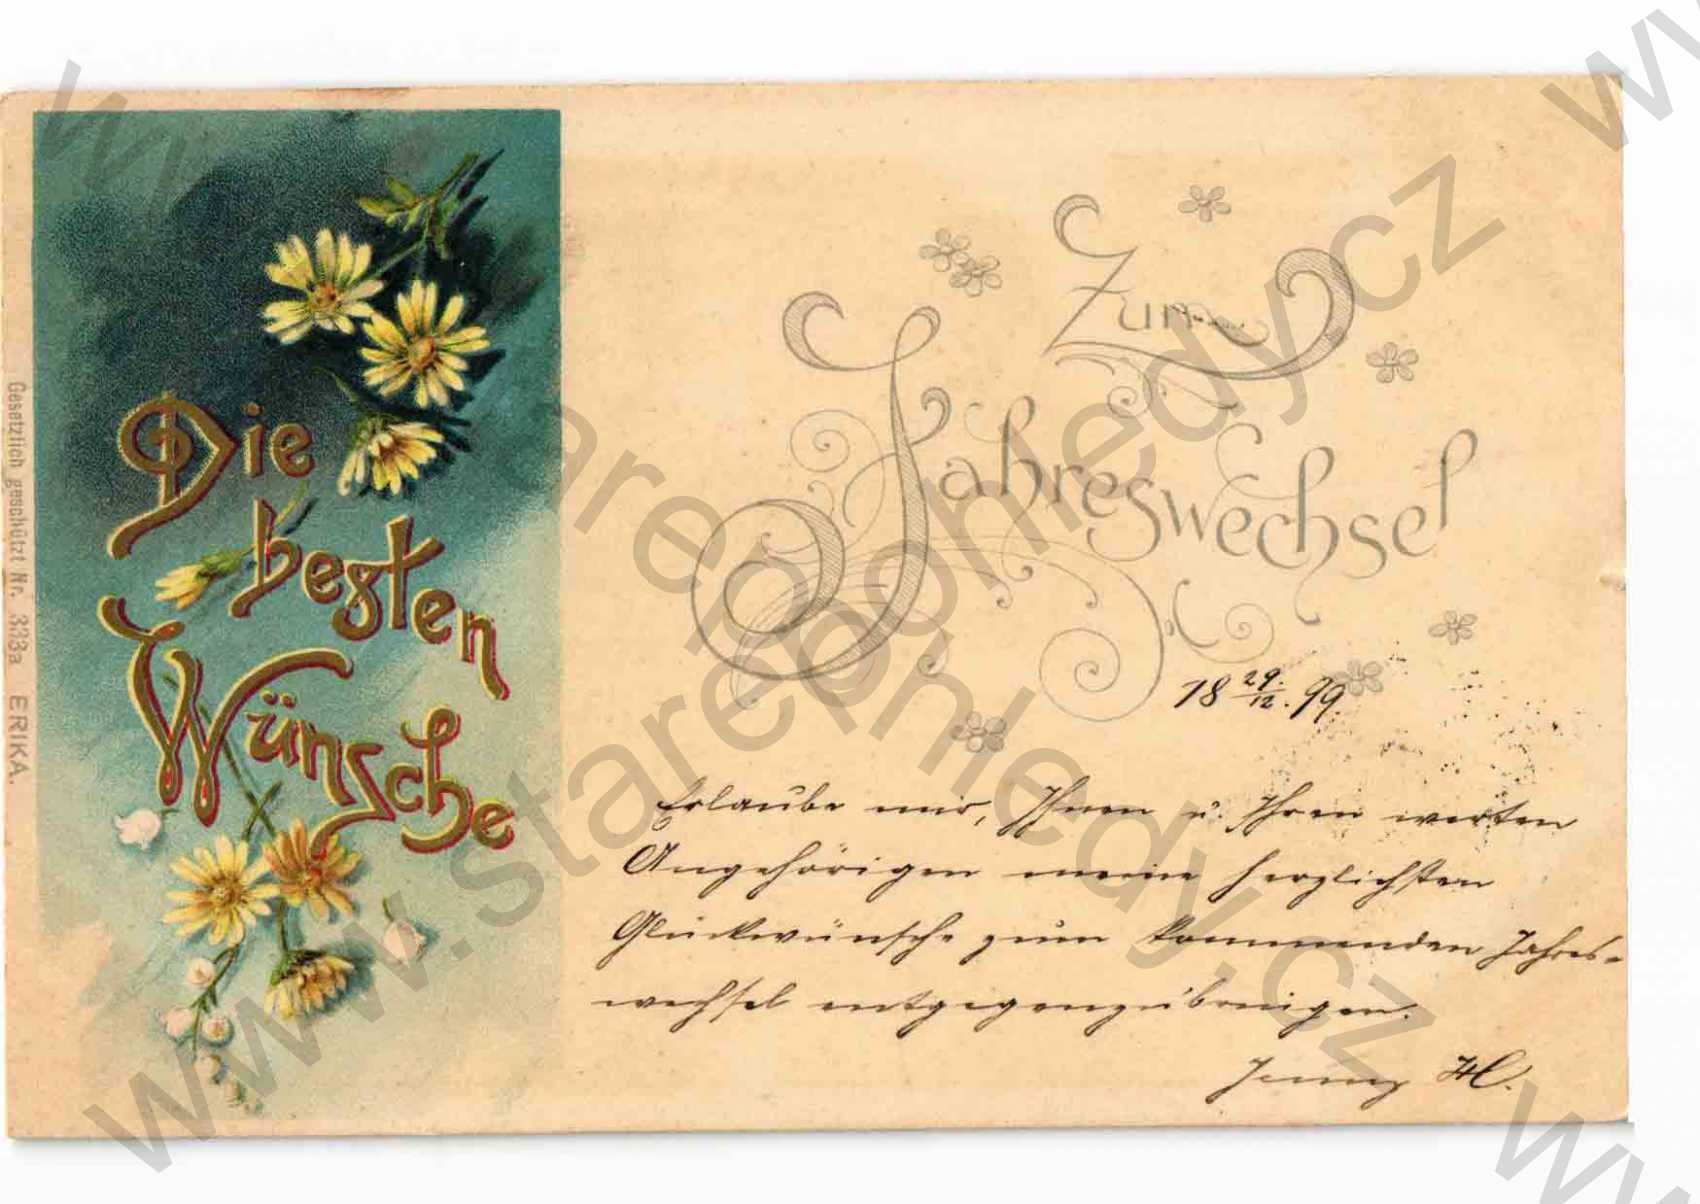 Die
besten
Wünsche
Gesetzlich geschützt Nr. 333a ERIKA.
Zum
Jahreswechsel
18 29./12. 99.
Erlaube mir, Ihnen u. Ihren werten
Angehörigen meine herzlichsten
Glückwünsche zum kommenden Jahres-
wechsel entgegenzubringen.
Jenny H.
www.starepohledy.cz
www.starepohledy.cz